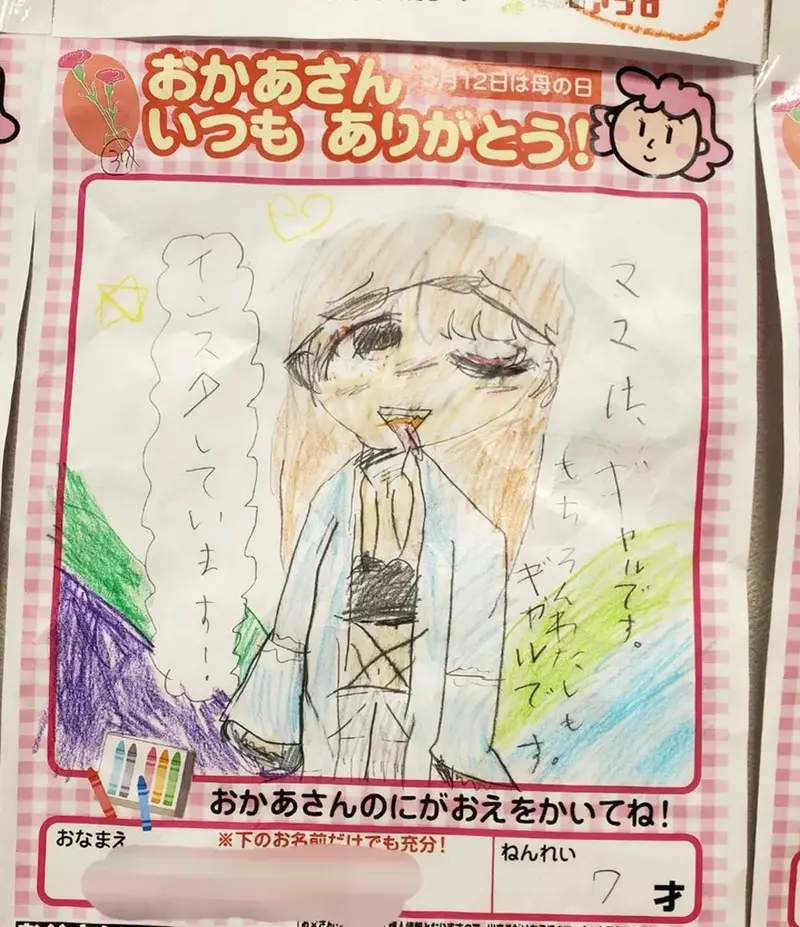 アプロ
おかあさん
5月12日は母の日
いつも ありがとう!
37
ママは、ギャルです。
もちろんわたしも
ギャルです。
インスタしています!
おかあさんのにがおえをかいてね!
おなまえ
※下のお名前だけでも充分!
ねんれい
7才